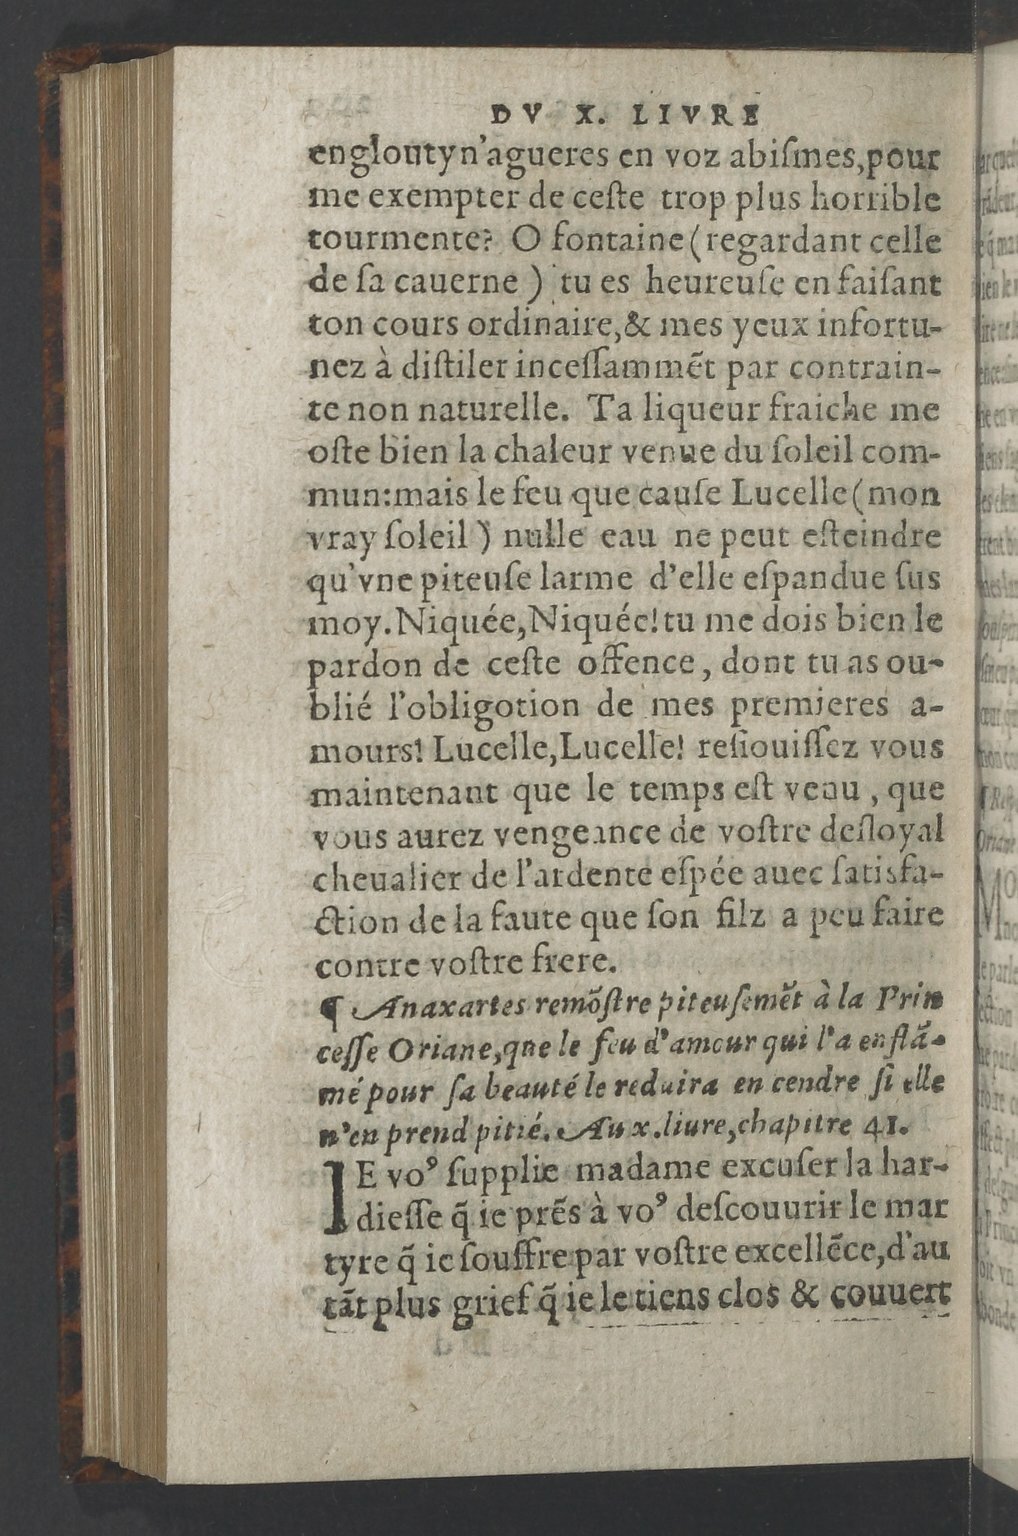 DV X. LIVRE
engloutyn'agueres en voz abiſmes,pour
me exempter de ceſte trop plus horrible
tourmente? O fontaine(regardant celle
de ſa cauerne ) tu es heureuſe en faiſant
ton cours ordinaire,& mes yeux infortu-
nez à diſtiler inceſſammẽt par contrain-
te non naturelle. Ta liqueur fraiche me
oſte bien la chaleur venue du ſoleil com-
mun:mais le feu que cauſe Lucelle(mon
vray ſoleil ) nulle eau ne peut eſteindre
qu'vne piteuſe larme d'elle eſpandue ſus
moy.Niquée,Niquée!tu me dois bien le
pardon de ceſte offence, dont tu as ou-
blié l'obligotion de mes premieres a-
mours! Lucelle,Lucelle! reſiouiſſez vous
maintenant que le temps eſt venu , que
vous aurez vengeance de voſtre deſloyal
cheualier de l'ardente eſpée auec ſatisfa-
ction de la faute que ſon filz a peu faire
contre voſtre frere.
¶ Anaxartes remõſtre piteuſemẽt à la Prin
ceſſe Oriane,qne le feu d'amour qui l'a enflã-
mé pour ſa beauté le reduira en cendre ſi elle
n'en prend pitié. Au x.liure,chapitre 41.
IE vo⁹ ſupplie madame excuſer la har-
dieſſe q̃ ie prẽs à vo⁹ deſcouurir le mar
tyre q̃ ie ſouffre par voſtre excellẽce,d'au
tãt plus grief q̃ ie le tiens clos & couuert